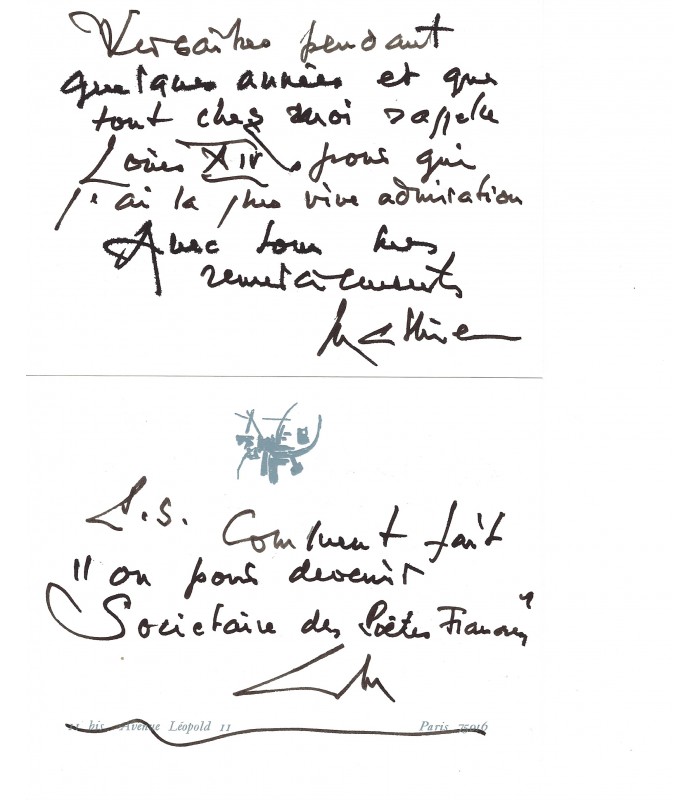 Versailles pendant
quelques années et que
tout chez moi rappelle
Louis XIV pour qui
j'ai la plus vive admiration
Avec tous mes
remerciements
Mathieu
P.S. Comment fait
"on pour devenir
Societaire des Poètes Français"
bis, Avenue Léopold II
Paris 75016